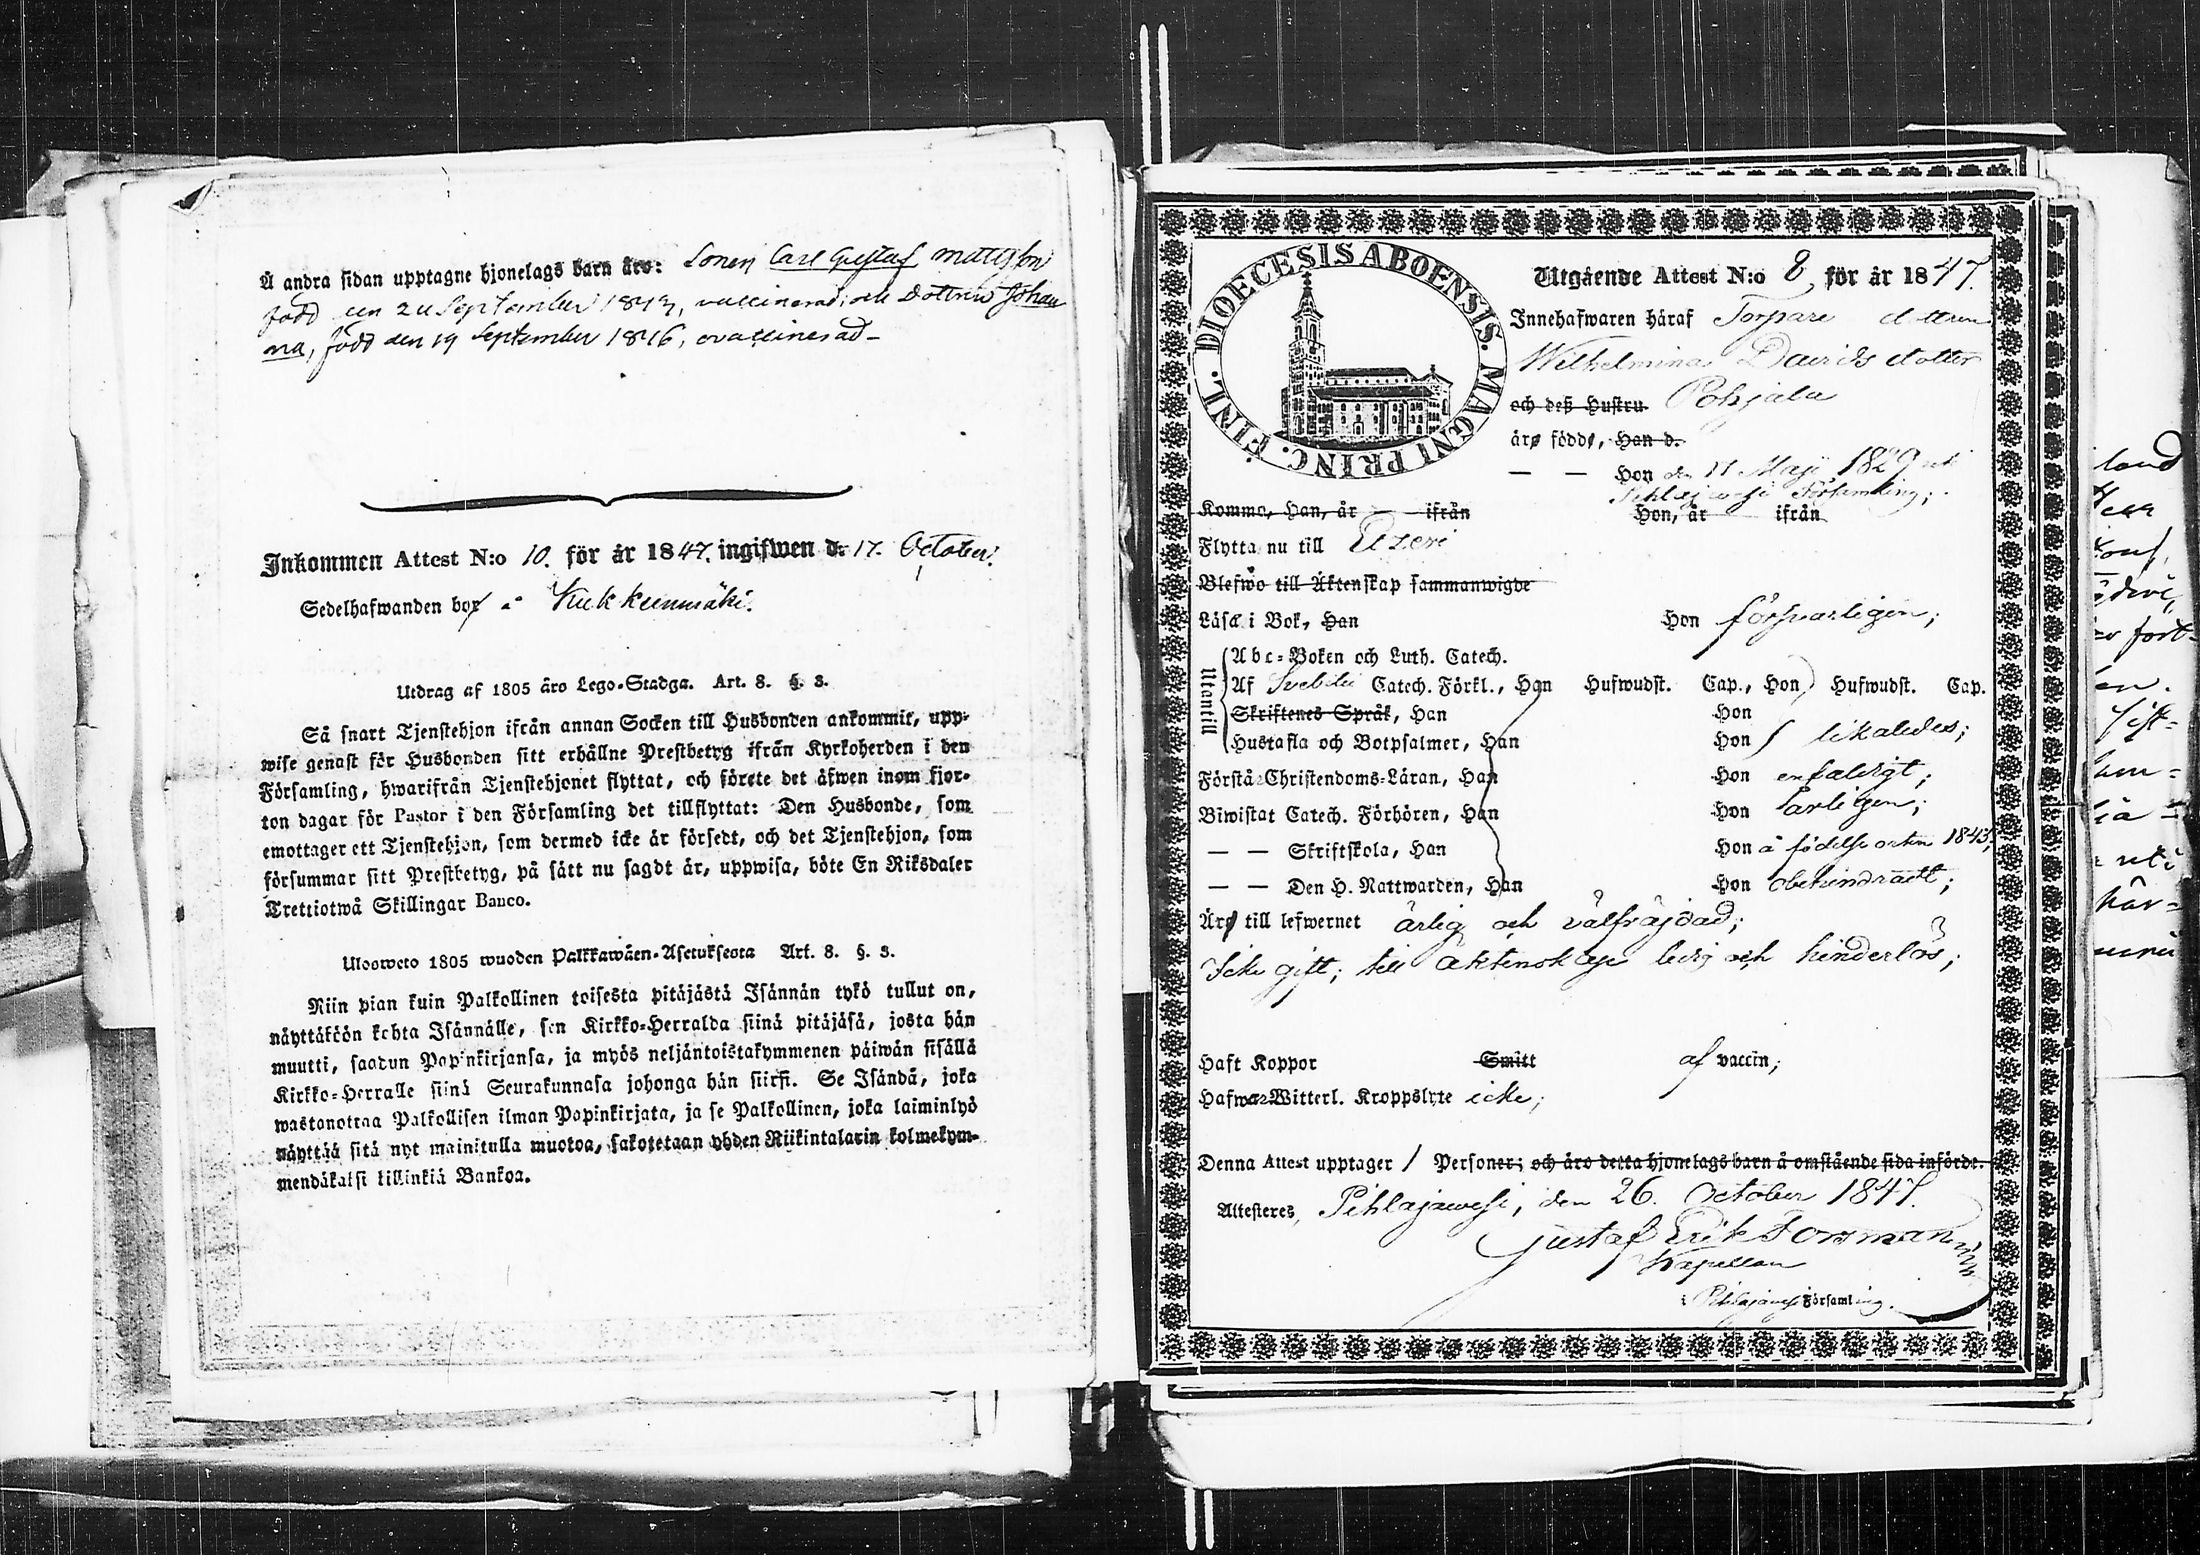 Å andra sidan upptagne hjonelags barn äro: Sonen Carl Gustaf Mattsson
född den 24 September 1843, vaccinerad; och Dottren Johan
na, född den 19 September 1846, ovaccinerad_
Inkommen Attest N:o 10. för år 1847. ingifwen d. 17. October.
Sedelhafwanden bor å Kukkunmäki.
Utdrag af 1805 års Lego-Stadga. Art. 8. §. 3.
Så snart Tjenstehjon ifrån annan Socken till Husbonden ankommit, upp-
wise genast för Husbonden sitt erhållne Prestbetyg ifrån Kyrkoherden i den
Församling, hwarifrån Tjenstehjonet flyttat, och förete det äfwen inom fjor-
ton dagar för Pastor i den Församling det tillflyttat: Den Husbonde, som
emottager ett Tjenstehjon, som dermed icke är försedt, och det Tjenstehjon, som
försummar sitt Prestbetyg, på sätt nu sagdt är, uppwisa, böte En Riksdaler
Trettiotwå Skillingar Banco.
Ulosweto 1805 wuoden Palkkawäen-Asetuksesta Art. 8. §. 3.
Niin pian kuin Palkollinen toisesta pitäjästä Isännän tykö tullut on,
näyttäköön kohta Isännälle, sen Kirkko-Herralda siinä pitäjäsä, josta hän
muutti, saadun Papinkirjansa, ja myös neljäntoistakymmenen päiwän sisällä
Kirkko-Herralle siinä Seurakunnasa johonga hän siirsi. Se Isändä, joka
wastanottaa Palkollisen ilman Papinkirjata, ja se Palkollinen, joka laiminlyö
näyttää sitä nyt mainitulla muotoa, sakotetaan yhden Riikintalarin kolmekym-
mendäkaksi killinkiä Bankoa.
DIOECESIS ABOENSIS. MAGNI PRINC. FINL.
Utgående Attest N:o 8, för år 1847.
Innehafwaren häraf Torpare dottren
Wilhelmina Davidsdotter
och deß Hustru Pohjala
äro födde, Han d.
— — Hon den 11 Maji 1829 uti
Pihlajawesi Församling;
Komne, Han, år — ifrån Hon, år — ifrån
Flytta nu till Etzeri
Blefwo till Äktenskap sammanwigde
Läsa i Bok, Han Hon försvarligen;
Utantill
Abc-Boken och Luth. Catech.
Af Svebilii Catech. Förkl., Han Hufwudst. Cap., Hon Hufwudst. Cap.
Skriftenes Språk, Han Hon
Hustafla och Botpsalmer, Han Hon likaledes;
Förstå Christendoms-Läran, Han Hon enfaldigt;
Biwistat Catech. Förhören, Han Hon årligen;
— — Skriftskola, Han Hon å födelse orten 1843;
— — Den H. Nattwarden, Han Hon obehindradt;
Äro till lefwernet ärlig och välfräjdad;
Icke gift; till äktenskap ledig och hinderlös;
Haft Koppor Smitt af vaccin;
Hafwa Witterl. Kroppslyte icke;
Denna Attest upptager 1 Personer; och äro detta hjonelags barn å omstående sida införde.
Attesteres, Pihlajawesi, den 26. October 1847.
Gustaf Erik Forsman
Kapellan
i Pihlajawesi Församling.